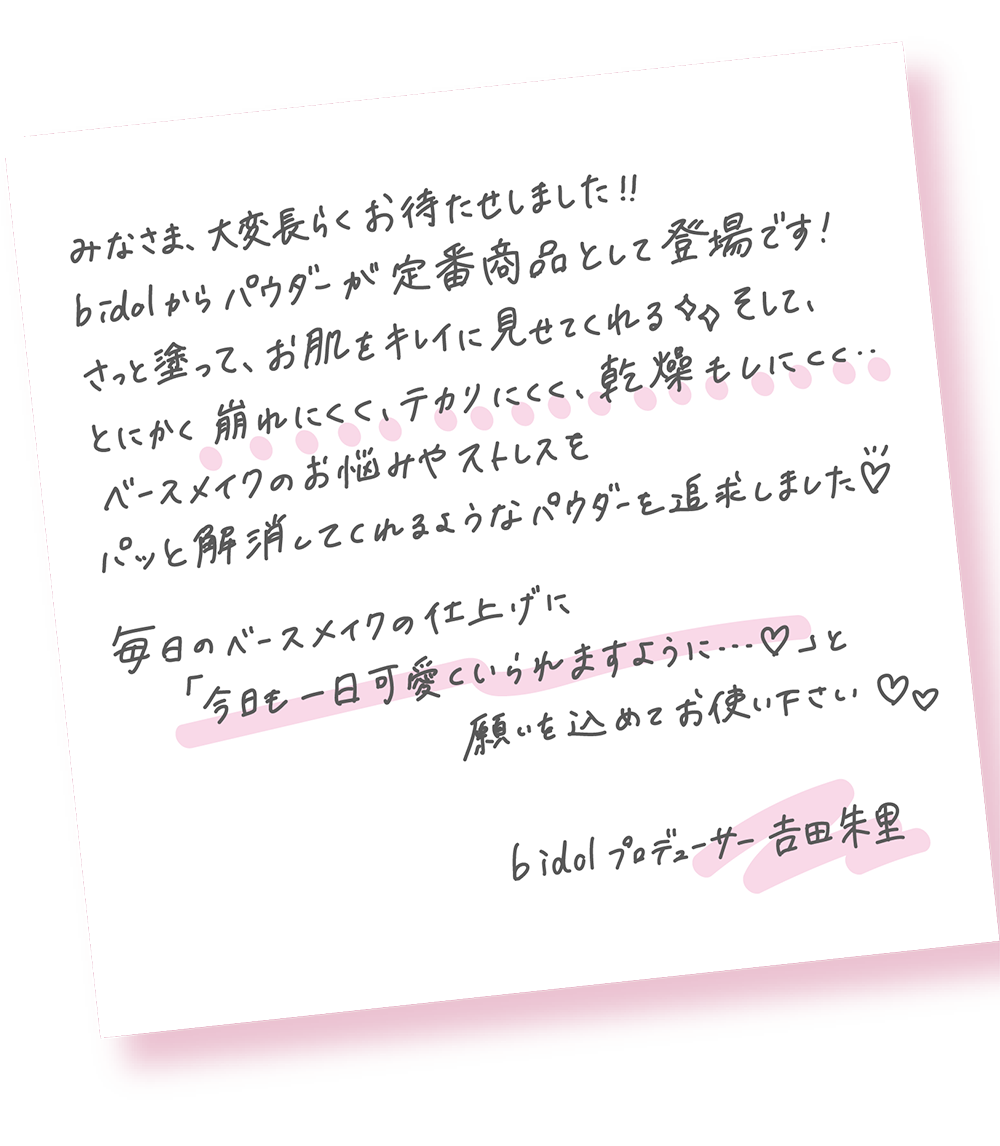 みなさま、大変長らくお待たせしました!!
bidolからパウダーが定番商品として登場です!
さっと塗って、お肌をキレイに見せてくれる✧✧そして、
とにかく崩れにくく、テカりにくく、乾燥もしにくく‥
ベースメイクのお悩みやストレスを
パッと解消してくれるようなパウダーを追求しました♡
毎日のベースメイクの仕上げに
「今日も一日可愛くいられますように…♡」と
願いを込めてお使い下さい♡♡
bidolプロデューサー 吉田朱里